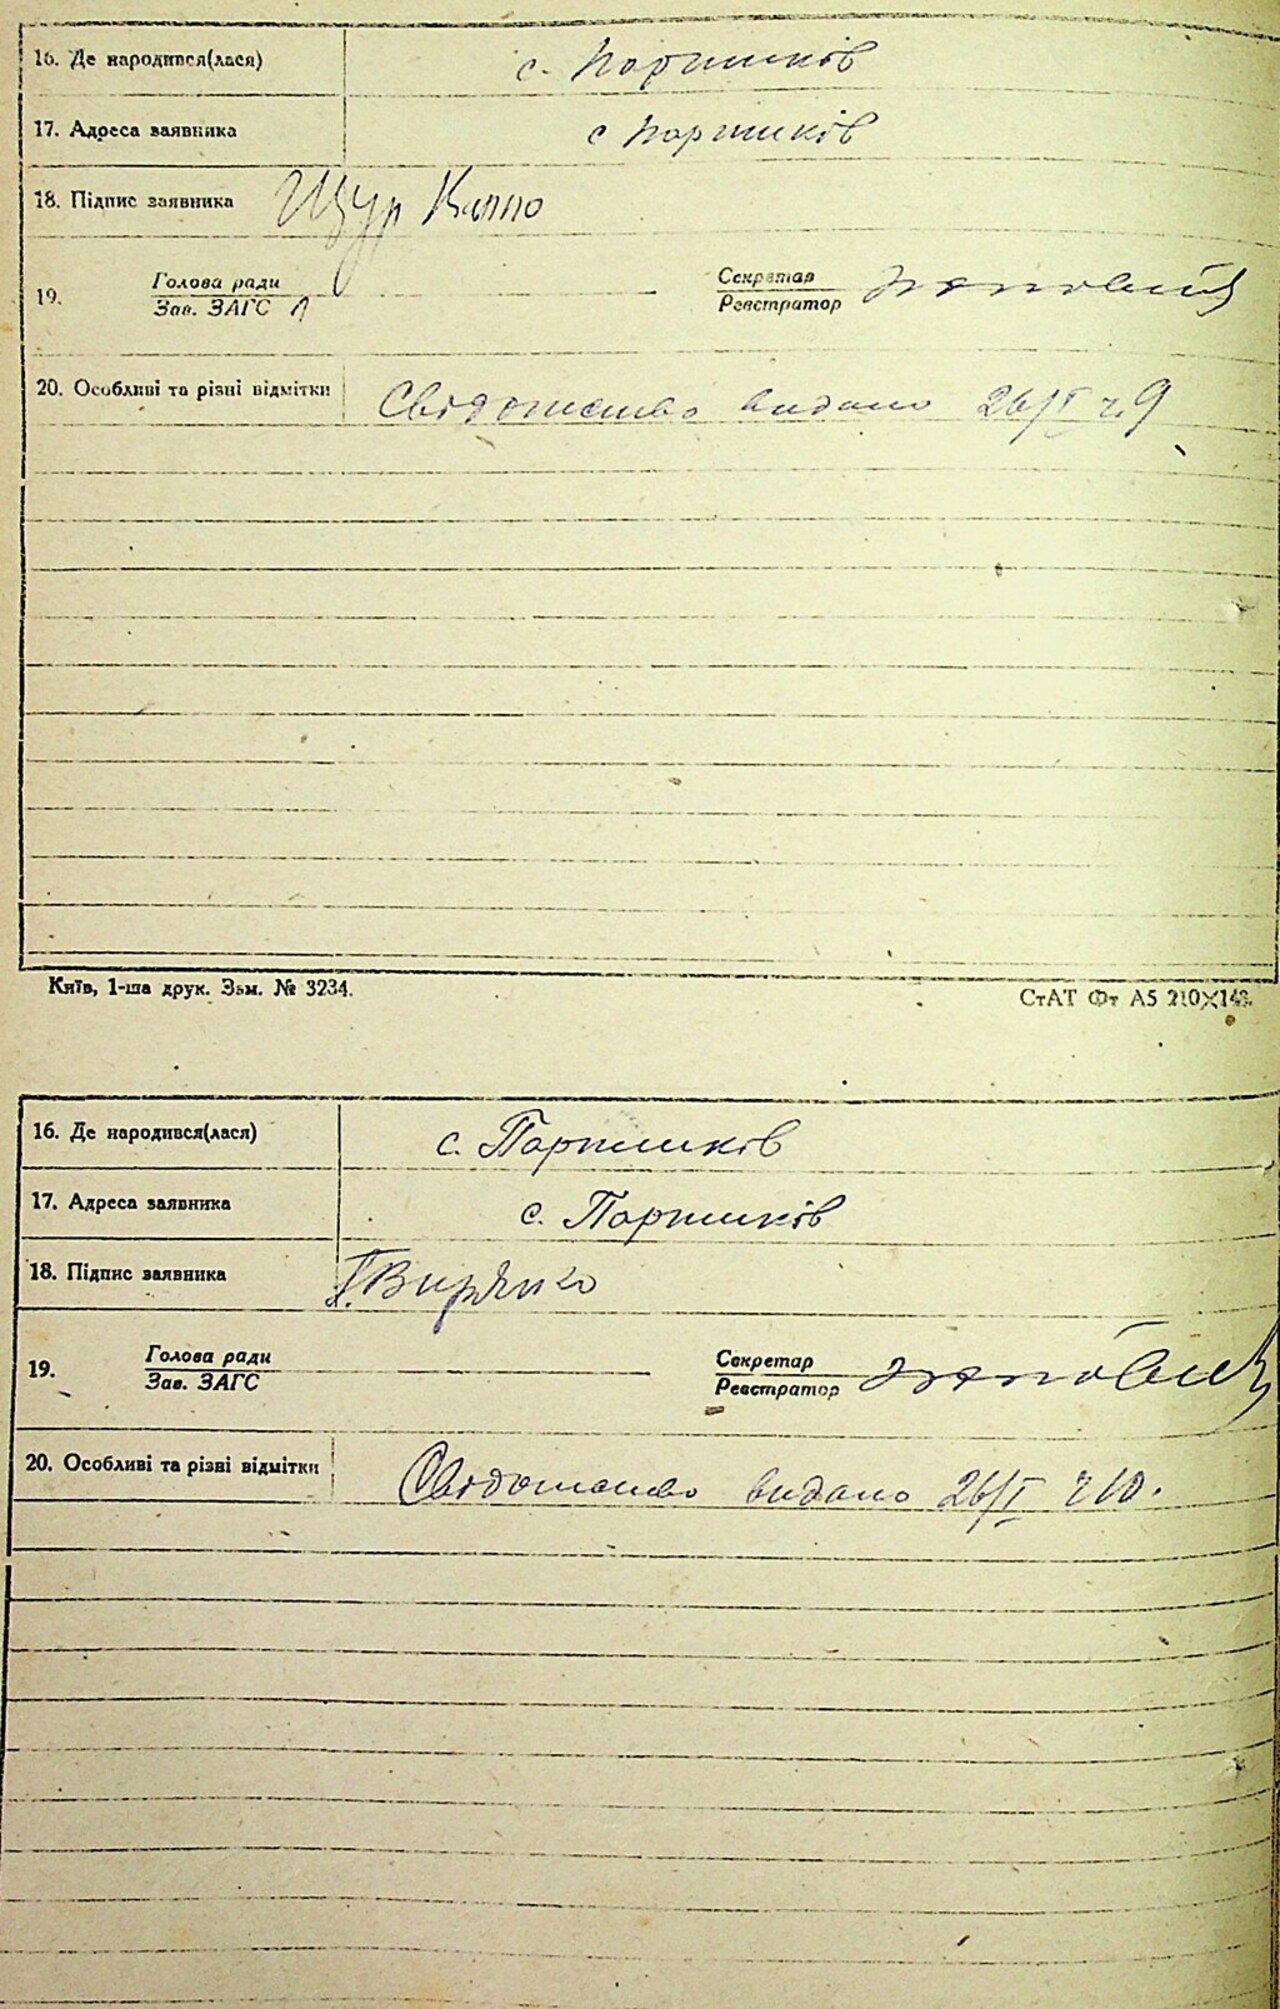 16. Де народився(лася) с. Поршиків
17. Адреса заявника с Поршиків
18. Підпис заявника Щур
19. Голова ради Секретар
Зав. ЗАГС Реєстратор
20. Особливі та різні відмітки Свідотство видано 26/I ч. 9
Київ, 1-ша друк. Зам. № 3234.
СтАТ Фт А5 210×148.
16. Де народився(лася) с. Поршиків
17. Адреса заявника с. Поршиків
18. Підпис заявника
19. Голова ради Секретар
Зав. ЗАГС Реєстратор
20. Особливі та різні відмітки Свідотство видано 26/I ч 10.